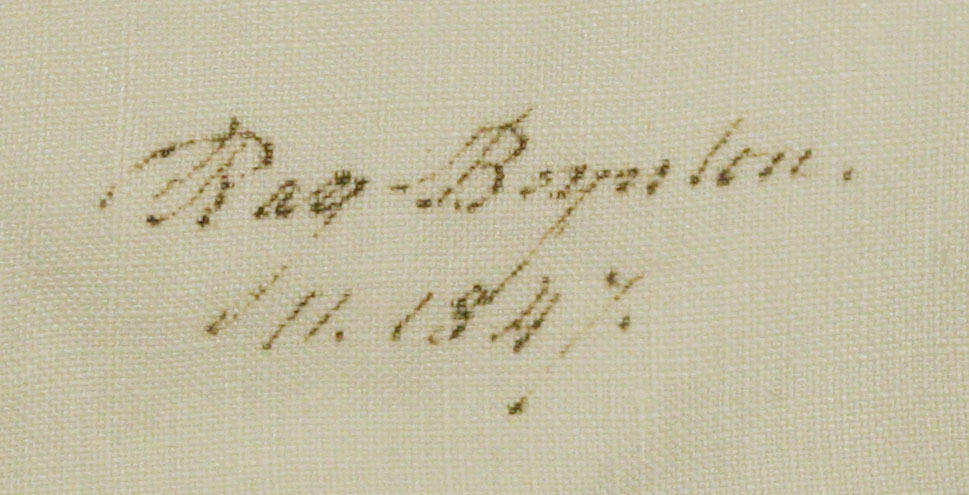 Ray-Boynton.
111. 1847.